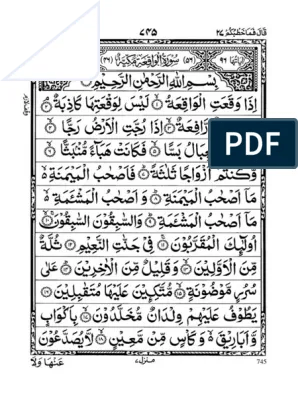 قَالَ فَمَا خَطْبُكُمْ ٢٧
٧٤٥
اٰيَاتُهَا ٩٦ (٥٦) سُوْرَةُ الْوَاقِعَةِ مَكِّيَّةٌ (٤٦)
بِسْمِ اللّٰهِ الرَّحْمٰنِ الرَّحِيْمِ
اِذَا وَقَعَتِ الْوَاقِعَةُ ۝ لَيْسَ لِوَقْعَتِهَا كَاذِبَةٌ ۝
رَّافِعَةٌ ۝ اِذَا رُجَّتِ الْاَرْضُ رَجًّا ۝
بَسًّا ۝ فَكَانَتْ هَبَآءً مُّنْۢبَثًّا ۝
PDF
وَّكُنْتُمْ اَزْوَاجًا ثَلٰثَةً ۝ فَاَصْحٰبُ الْمَيْمَنَةِ
مَاۤ اَصْحٰبُ الْمَيْمَنَةِ ۝ وَاَصْحٰبُ الْمَشْـَٔمَةِ
مَاۤ اَصْحٰبُ الْمَشْـَٔمَةِ ۝ وَالسّٰبِقُوْنَ السّٰبِقُوْنَ ۝
اُولٰٓئِكَ الْمُقَرَّبُوْنَ ۝ فِيْ جَنّٰتِ النَّعِيْمِ ۝ ثُلَّةٌ
مِّنَ الْاَوَّلِيْنَ ۝ وَقَلِيْلٌ مِّنَ الْاٰخِرِيْنَ ۝ عَلٰى
سُرُرٍ مَّوْضُوْنَةٍ ۝ مُّتَّكِـِٕيْنَ عَلَيْهَا مُتَقٰبِلِيْنَ ۝
يَطُوْفُ عَلَيْهِمْ وِلْدَانٌ مُّخَلَّدُوْنَ ۝ بِاَكْوَابٍ
وَّاَبَارِيْقَ ۙ وَكَاْسٍ مِّنْ مَّعِيْنٍ ۝ لَّا يُصَدَّعُوْنَ
عَنْهَا وَلَا
منزل ٧
745